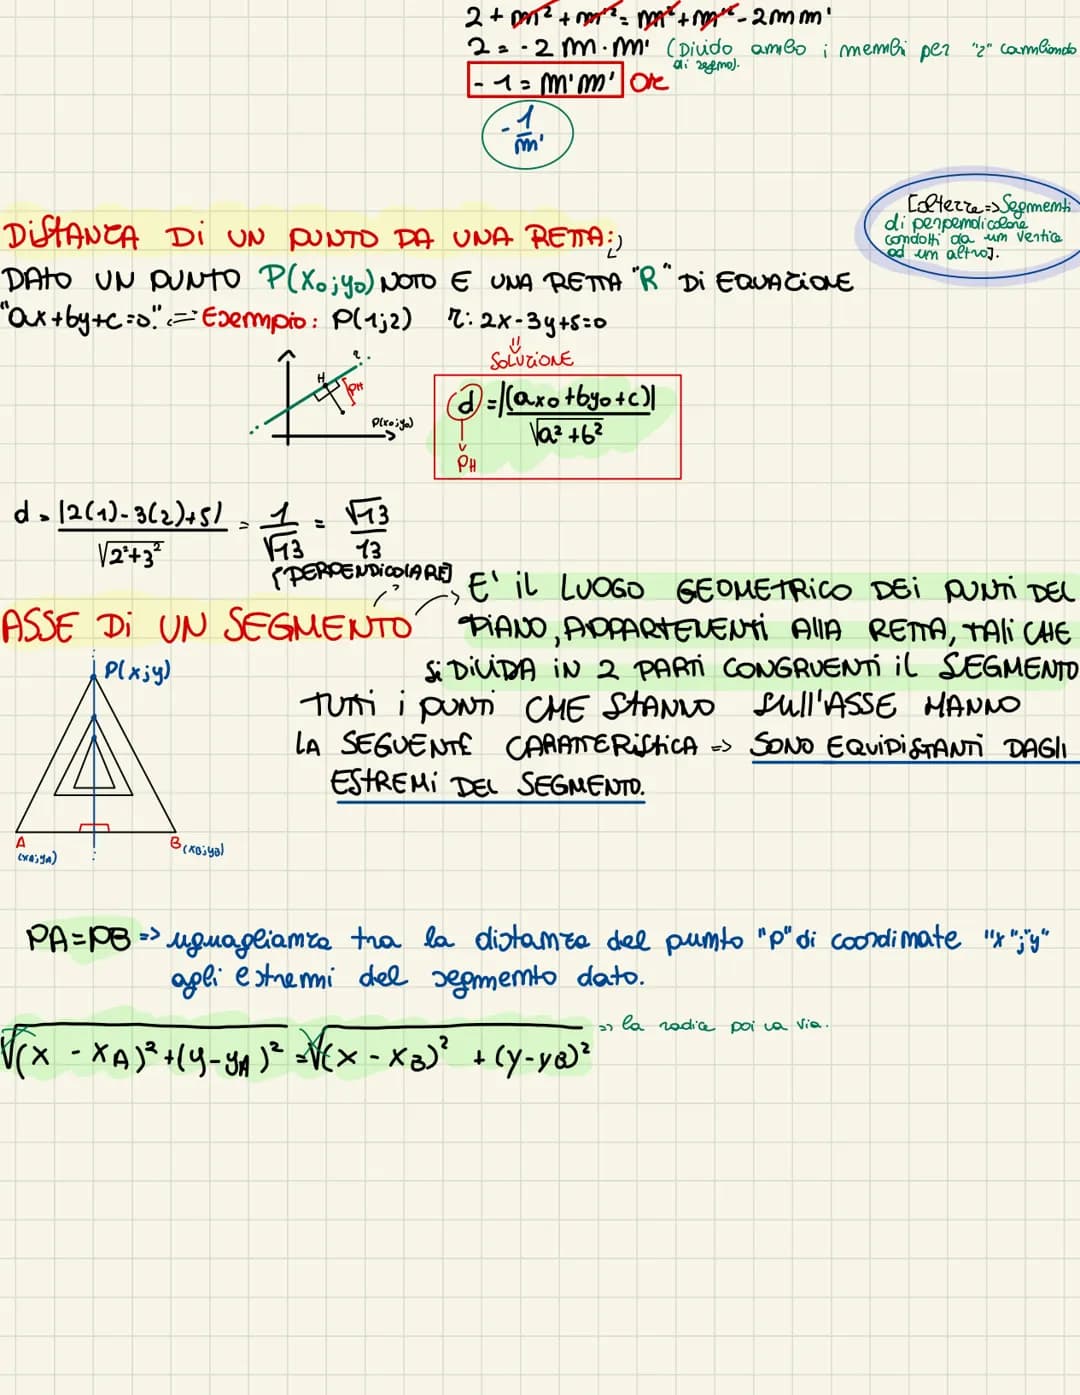 2 + m² + m'² = m² + m'² - 2mm'
2 = -2 m · m' (Divido ambo i membi per "2" cambiando
di segno).
- 1 = m'm' | OK
- 1/m'
[alterre => Segmenti
di perpendicolare
condotti da un vertice
ad un altro].
DISTANZA Di UN PUNTO DA UNA RETTA:
DATO UN PUNTO P(x₀;y₀) NOTO E UNA RETTA "R" Di EQUAZIONE
"ax+by+c=0." <= Esempio: P(1;2) r: 2x-3y+5=0
SOLUZIONE
r
H
PH
P(x₀;y₀)
d = |(ax₀+by₀+c)| / √a²+b²
PH
d = |2(1)-3(2)+5| / √2²+3² = 1/√13 = √13/13
[PERPENDICOLARE]
ASSE Di UN SEGMENTO
E' iL LUOGO GEOMETRICO DEI PUNTI DEL
PIANO, APPARTENENTI AllA RETTA, TALI CHE
Si DIVIDA IN 2 PARTI CONGRUENTI iL SEGMENTO
P(x;y)
TUTTI i PUNTI CHE STANNO SUll'ASSE HANNO
LA SEGUENTE CARATTERISTICA => SONO EQUIDISTANTI DAGLI
ESTREMI DEL SEGMENTO.
A
(xA;yA)
B (xB;yB)
PA=PB => uguaglianza tra la distanza del punto "P" di coordinate "x";"y"
agli estremi del segmento dato.
√(x - xA)² + (y-yA)² = √(x - xB)² + (y-yB)² => la radice poi va via.